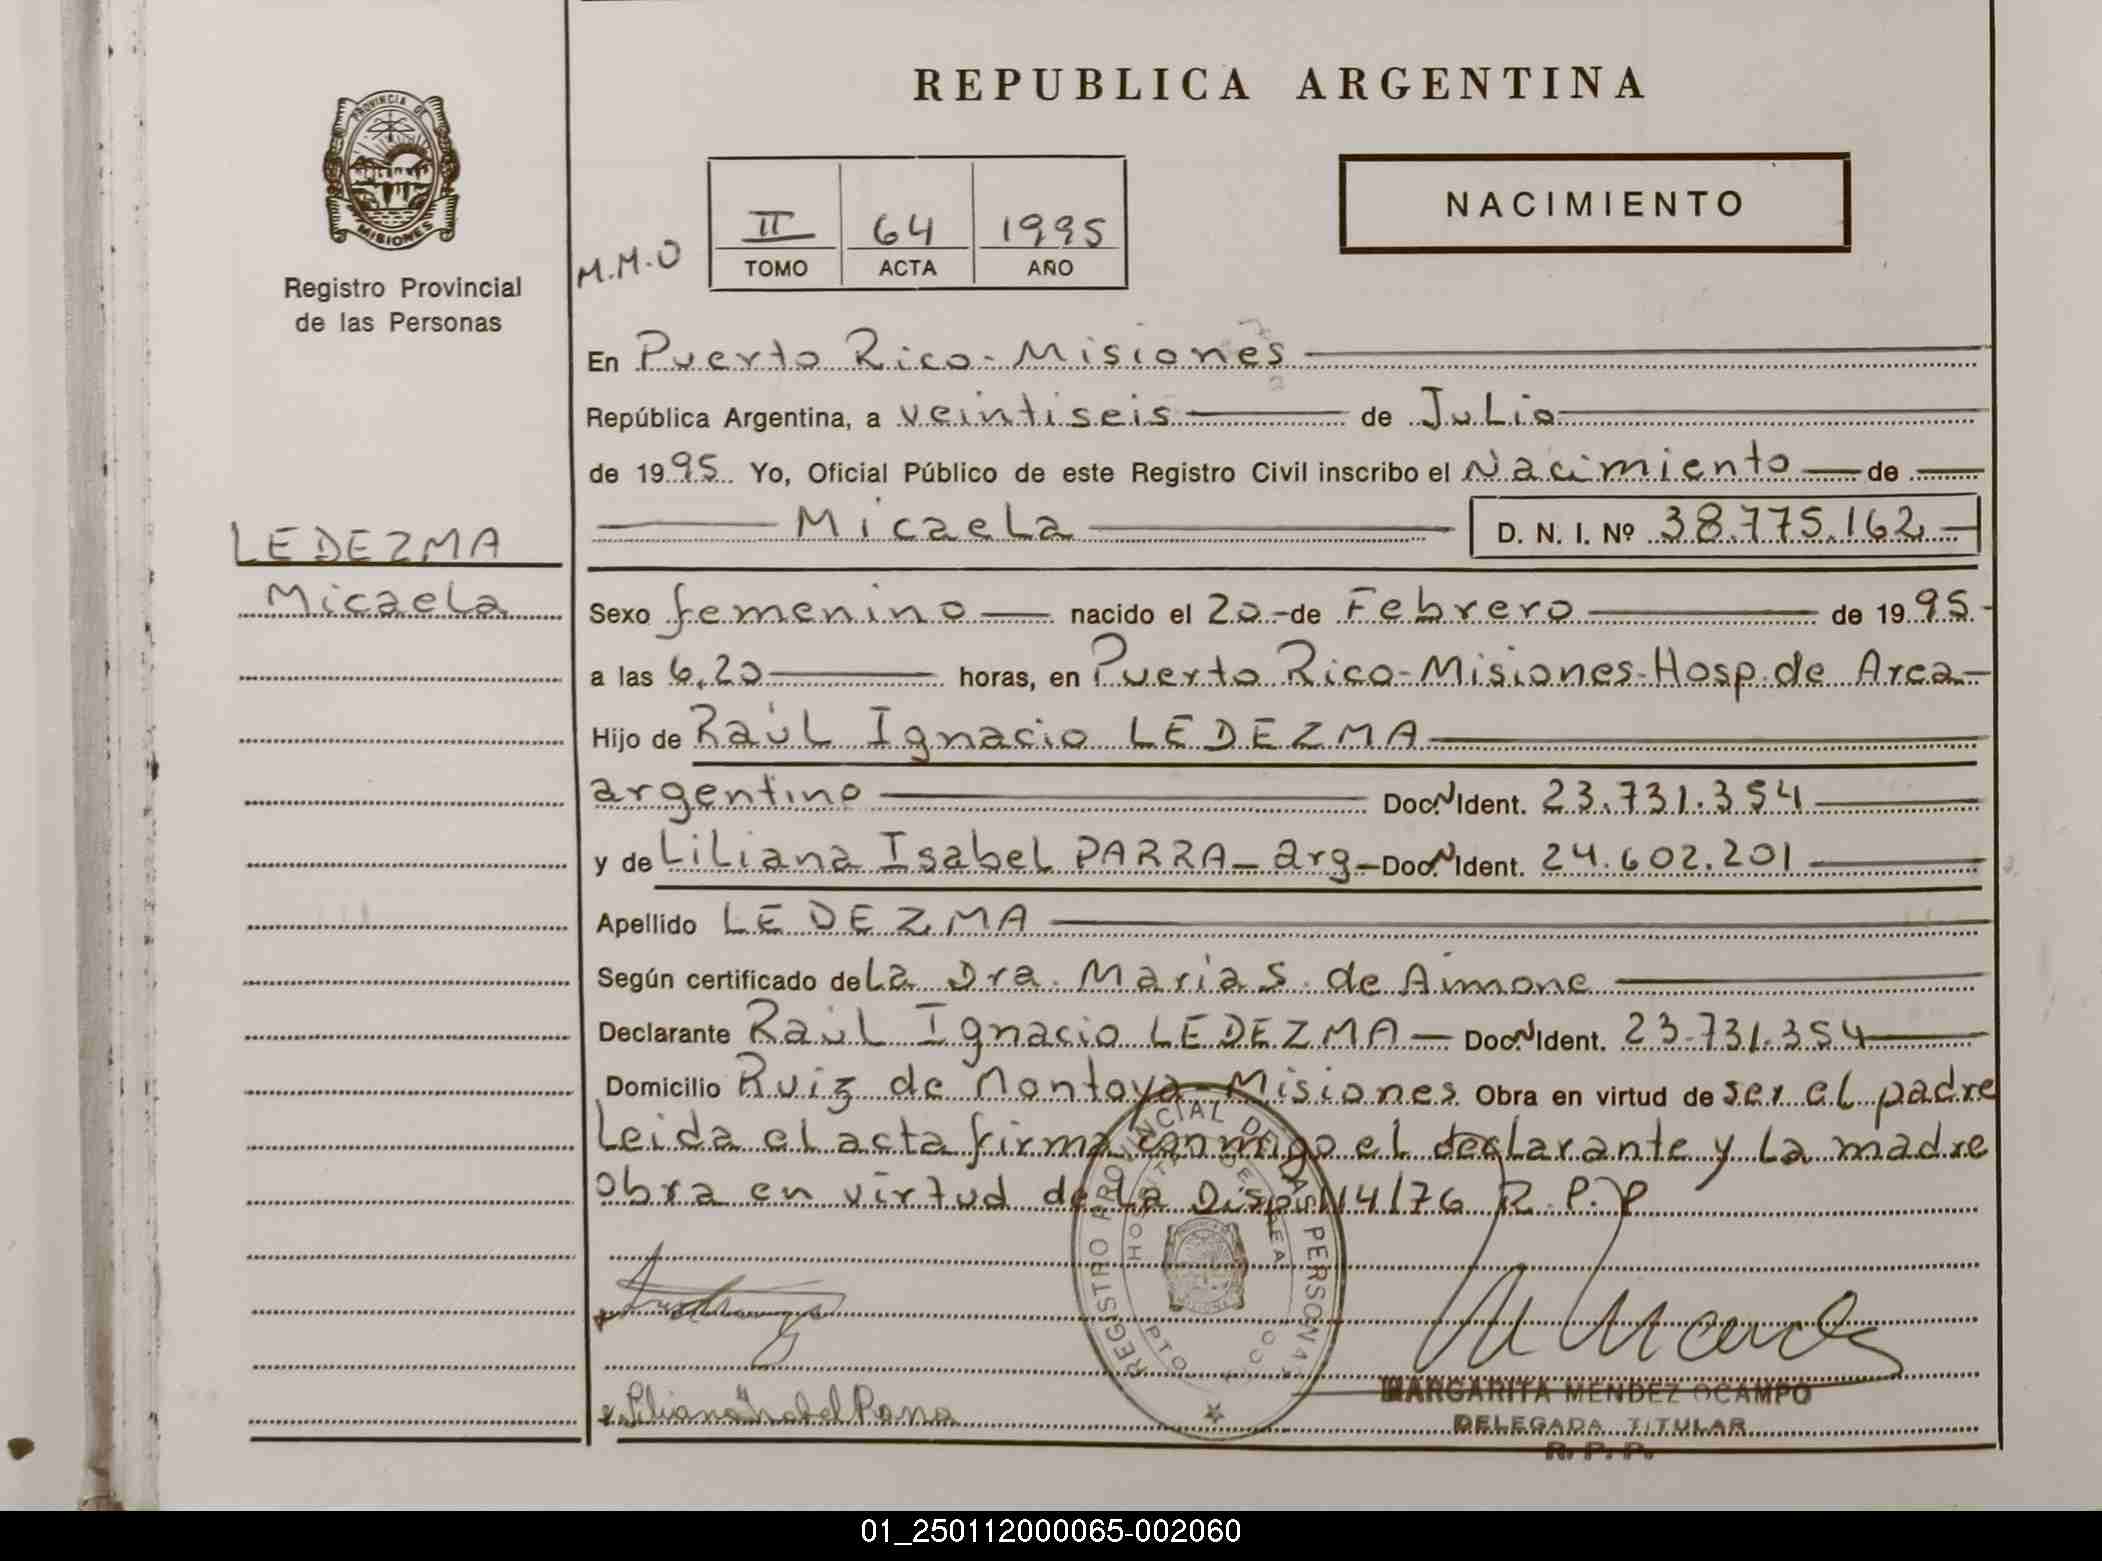 REPUBLICA ARGENTINA
PROVINCIA DE
MISIONES
Registro Provincial
de las Personas
NACIMIENTO
M.M.O
II 64 1995
TOMO ACTA AÑO
En Puerto Rico - Misiones
República Argentina, a veintiseis de Julio
de 1995 Yo, Oficial Público de este Registro Civil inscribo el Nacimiento de
Micaela D. N. I. Nº 38.775.162
LEDEZMA
Micaela
Sexo femenino nacido el 20 de Febrero de 1995
a las 6,20 horas, en Puerto Rico - Misiones - Hosp. de Area
Hijo de Raúl Ignacio LEDEZMA
argentino Doc. N Ident. 23.731.354
y de Liliana Isabel PARRA - arg - Doc. N Ident. 24.602.201
Apellido LEDEZMA
Según certificado de La Dra. Maria S. de Aimone
Declarante Raúl Ignacio LEDEZMA - Doc. N Ident. 23.731.354
Domicilio Ruiz de Montoya - Misiones Obra en virtud de ser el padre
Leida el acta firma conmigo el declarante y La madre
obra en virtud de La Disp. 114/76 R.P.P
REGISTRO PROVINCIAL DE LAS PERSONAS
HOSPITAL DE AREA
PTO RICO
Liliana Isabel Parra
MARGARITA MENDEZ OCAMPO
DELEGADA TITULAR
R. P. P.
01_250112000065-002060